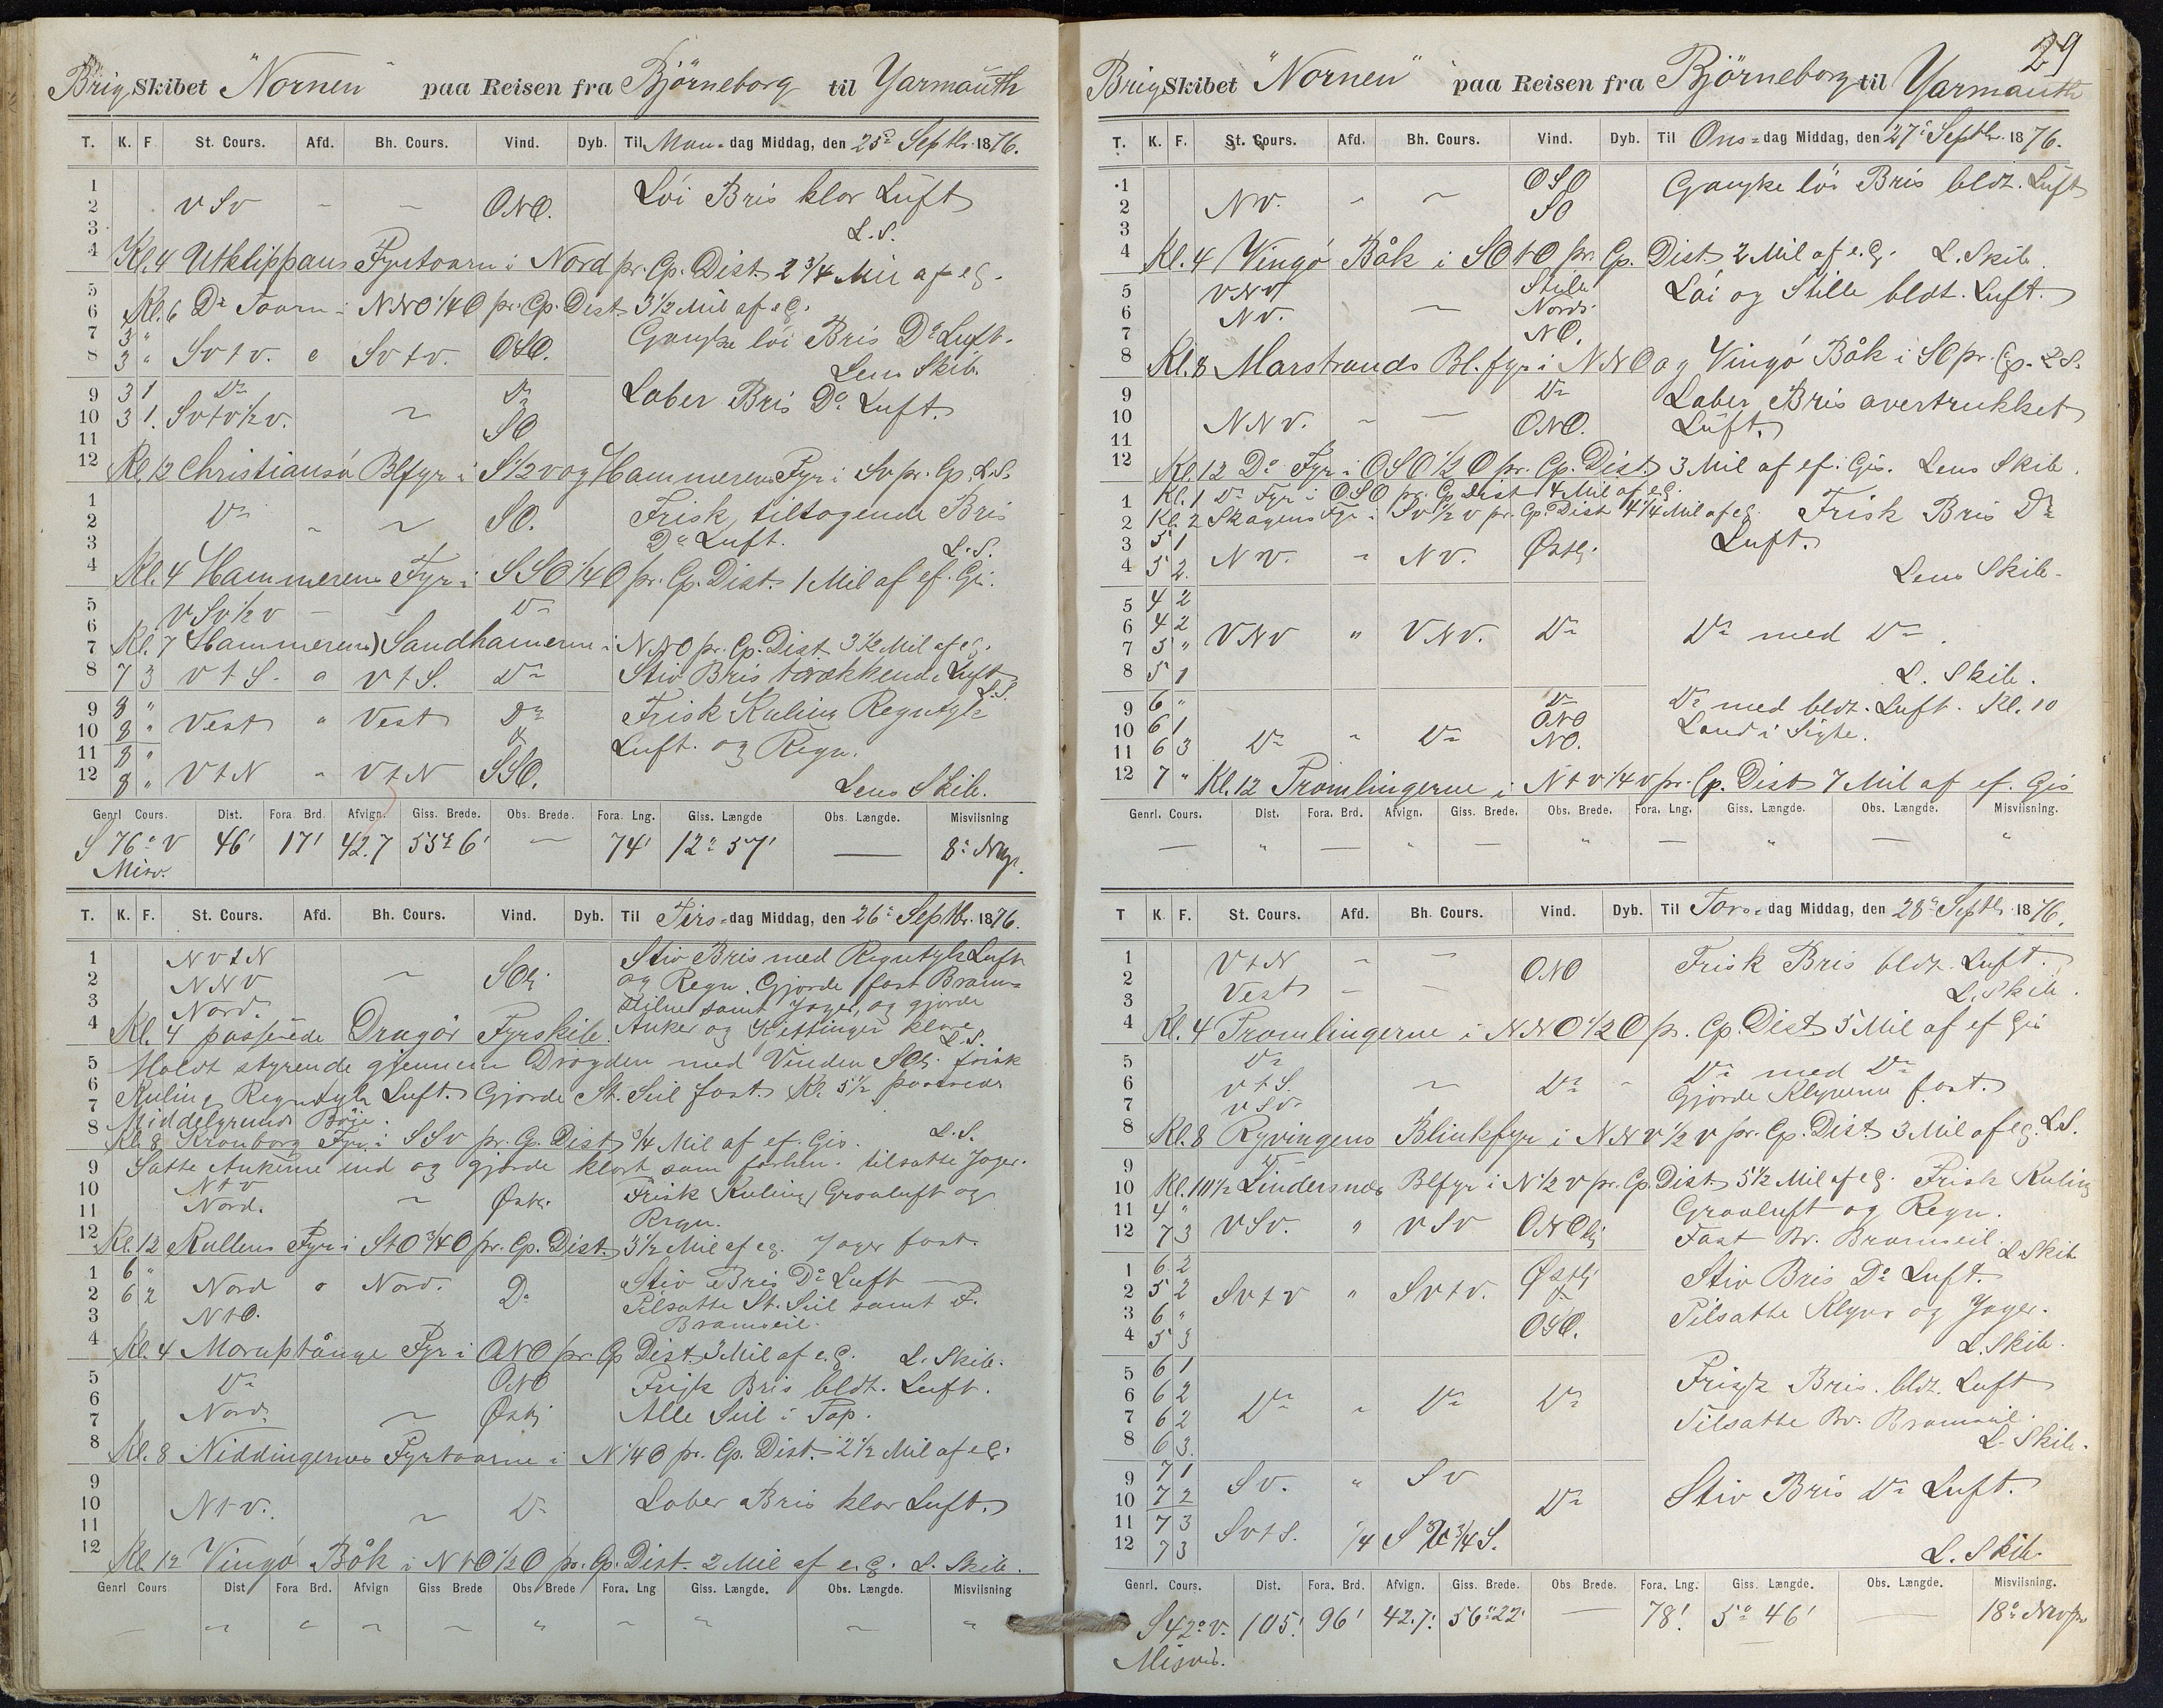 Brig Skibet "Nornen" paa Reisen fra Björneborg til Yarmouth
T. K. F. St. Cours. Afd. Bh. Cours. Vind. Dyb. Til Man-dag Middag, den 25de Septbr. 1876.
1
2 v Sv – – ONO. Löi Bris klar Luft
3 L.S.
4 Kl. 4 Utklippans Fyrtaarn i Nord pr. Cp. Dist. 2 3/4 Mil af e G.
5
6 Kl. 6 Do Taarn i NNO 1/4 O pr. Cp. Dist. 3 1/2 Mil af e G.
7 3 "
8 3 " Sv t v. o Sv t v. OSO. Ganske löi Bris Do Luft.
Lens Skib.
9 3 1 Do Do Laber Bris Do Luft.
10 3 1. Sv t v 1/2 v. ~ SO
11
12 Kl. 12 Christiansö Blfyr i S 1/2 v og Hammerens Fyr i Sv pr. Cp. L.S.
1
2 Do " ~ SO. Frisk, tiltagende Bris
3 Do Luft. L.S.
4 Kl. 4 Hammerens Fyr i SSO 1/4 O pr. Cp. Dist. 1 Mil af ef. Gi.
5
6 v Sv 1/2 v – – Do
7 Kl. 7 (Hammerens) Sandhamern i NNO pr. Cp. Dist 3 1/2 Mil af e G.
8 7 3 v t S. o v t S. Do Stiv Bris trækkende Luft
L.S.
9 8 "
10 8 " Vest " Vest Do Frisk Kuling Regntyk
11 8 " & Luft. og Regn.
12 8 " V t N " V t N SSO. Lens Skib.
Genrl Cours. Dist. Fora Brd. Afvign. Giss. Brede. Obs. Brede. Fora. Lng. Giss. Længde Obs. Længde. Misviisning
S 76° v 46' 17' 42.7 55° 6' — 74' 12° 57' — 8°
Misv.
T. K. F. St. Cours. Afd. Bh. Cours. Vind. Dyb. Til Tirs-dag Middag, den 26de Septbr. 1876.
1 N v t N Stiv Bris med Regntyk Luft
2 N N v ~ SOli og Regn. Gjorde fast Bram=
3 Nord. seilene samt Jager, og gjorde
4 Kl. 4 passerede Dragör Fyrskib. Anker og Kjettinger klare
L.S.
5 Holdt styrende gjennem Drogden med Vinden SOli. frisk
6 Kuling Regntyk Luft. Gjorde St. Seil fast. Kl. 5 1/2 passerede
7 Middelgrunds Böie.
8 Kl. 8 Kronborg Fyr i SSv pr. Cp. Dist 3/4 Mil af ef. Gis. L.S.
9 Satte Ankerne ind og gjorde klart som forhen. tilsatte Jager.
10 N t v
11 Nord. ~ Östli. Frisk Kuling Graaluft og
Regn.
12 Kl. 12 Kullens Fyr i StO 3/4 O pr. Cp. Dist. 3 1/2 Mil af e G. Jager fast.
1 6 "
2 6 2 Nord o Nord. Do Stiv Bris Do Luft
3 N t O. Tilsatte St. Seil samt F.
Bramseil.
4 Kl. 4 Moruptånge Fyr i ONO pr. Cp Dist. 3 Mil af e. G. L. Skib.
5 Do ONO Frisk Bris bldt. Luft.
6 Nord. ~ Östli Alle Seil i Top.
7
8 Kl. 8 Niddingernes Fyrtaarne i N 1/4 O pr. Cp. Dist. 2 1/2 Mil af e G.
9
10 N t v. ~ Do Laber Bris klar Luft.
11
12 Kl. 12 Vingö Båk i N t O 1/2 O pr. Cp. Dist. 2 Mil af e. G. L. Skib.
Genrl Cours Dist. Fora Brd. Afvign Giss Brede Obs Brede Fora. Lng Giss. Længde. Obs. Længde. Misviisning
29
Brig Skibet "Nornen" paa Reisen fra Björneborg til Yarmouth
T. K. F. St. Cours. Afd. Bh. Cours. Vind. Dyb. Til Ons-dag Middag, den 27de Septbr. 1876.
1 OSO Ganske löi Bris bldt. Luft
2 Nv. " ~ SO
3
4 Kl. 4 Vingö Båk i SO t O pr. Cp. Dist 2 Mil af e. G. L. Skib.
5 VNV Stille Löi og Stille bldt. Luft.
6 Nv. — Nords.
7 NO.
8 Kl. 8 Marstrands Bl. fyr i NNO og Vingö Båk i SO pr. Cp. L.S.
9 Do Laber Bris overtrukket
10 NNv. " — ONO. Luft.
11
12 Kl. 12 Do Fyr i OSO 1/2 O pr. Cp. Dist. 3 Mil af ef. Gis. Lens Skib.
1 Kl. 1 Do Fyr i OSO pr. Cp. Dist 4 Mil af e G.
2 Kl. 2 Skagens Fyr i Sv 1/2 v pr. Cp. Dist 4 1/4 Mil af e G. Frisk Bris Do
3 5 1 Nv. " Nv. Östli. Luft.
4 5 2. Lens Skib.
5 4 2
6 4 2 VNV " VNV. Do Do med Do.
7 5 "
8 5 1 L. Skib.
9 6 " Do Do med bldt. Luft. Kl. 10
10 6 1 ONO Land i Sigte.
11 6 3 Do " Do NO.
12 7 " Kl. 12 Tromlingerne i N t v 1/4 v pr. Cp. Dist 7 Mil af ef. Gis
Genrl. Cours. Dist. Fora. Brd. Afvign. Giss. Brede. Obs. Brede. Fora. Lng. Giss. Længde. Obs. Længde. Misviisning.
T K. F. St. Cours. Afd. Bh. Cours. Vind. Dyb. Til Tors-dag Middag, den 28de Septbr. 1876.
1 V t N " — ONO Frisk Bris bldt. Luft.
2 Vest – –
3 L. Skib.
4 Kl. 4 Tromlingerne i NNO 1/2 O pr. Cp. Dist 5 Mil af ef Gis
5 Do Do med Do
6 v t S. ~ Do Gjorde Klyveren fast.
7 v Sv.
8 Kl. 8 Ryvingens Blinkfyr i NNv 1/2 v pr. Cp. Dist. 3 Mil af e G. L.S.
9 Do
10 Kl. 10 1/2 Lindersnes Blfyr i N 1/2 v pr. Cp. Dist 5 1/2 Mil af e G. Frisk Kuling
11 4 " Graaluft og Regn.
12 7 3 v Sv. " v Sv ONOli Fast Br. Bramseil. L. Skib
1 6 2 Östli Stiv Bris Do Luft.
2 5 2 Sv t v " Sv t v. &
3 6 " Tilsatte Klyver og Jager.
4 5 3 OSO. L. Skib.
5 6 1 Frisk Bris. bldt. Luft
6 6 2 Do " Do Do
7 6 2 Tilsatte Br. Bramseil.
8 6 3. L. Skib.
9 7 1 Sv. " Sv
10 7 2 Do Stiv Bris Do Luft.
11 7 3 Sv t S. 1/4 Sv 3/4 S.
12 7 3 L. Skib.
Genrl. Cours. Dist. Fora. Brd. Afvign. Giss. Brede. Obs Brede. Fora. Lng. Giss. Længde. Obs. Længde. Misviisning.
S 42° v. 105' 96' 42.7' 56° 22' — 78' 5° 46' — 18°
Misvis.